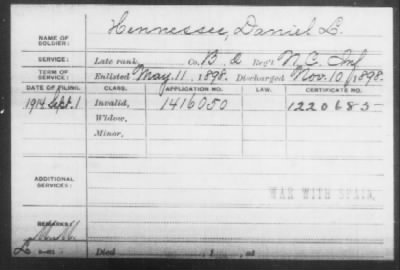 NAME OF SOLDIER: Hennessee, Daniel L.
SERVICE: Late rank Co. B, 2 Reg't N.C. Inf
TERM OF SERVICE: Enlisted May. 11, 1898. Discharged Nov. 10, 1898.
DATE OF FILING. CLASS. APPLICATION NO. LAW. CERTIFICATE NO.
1914 Sept. 1 Invalid, 1416050 1220685
Widow,
Minor,
ADDITIONAL SERVICES:
WAR WITH SPAIN.
REMARKS:
Died , 1 , at